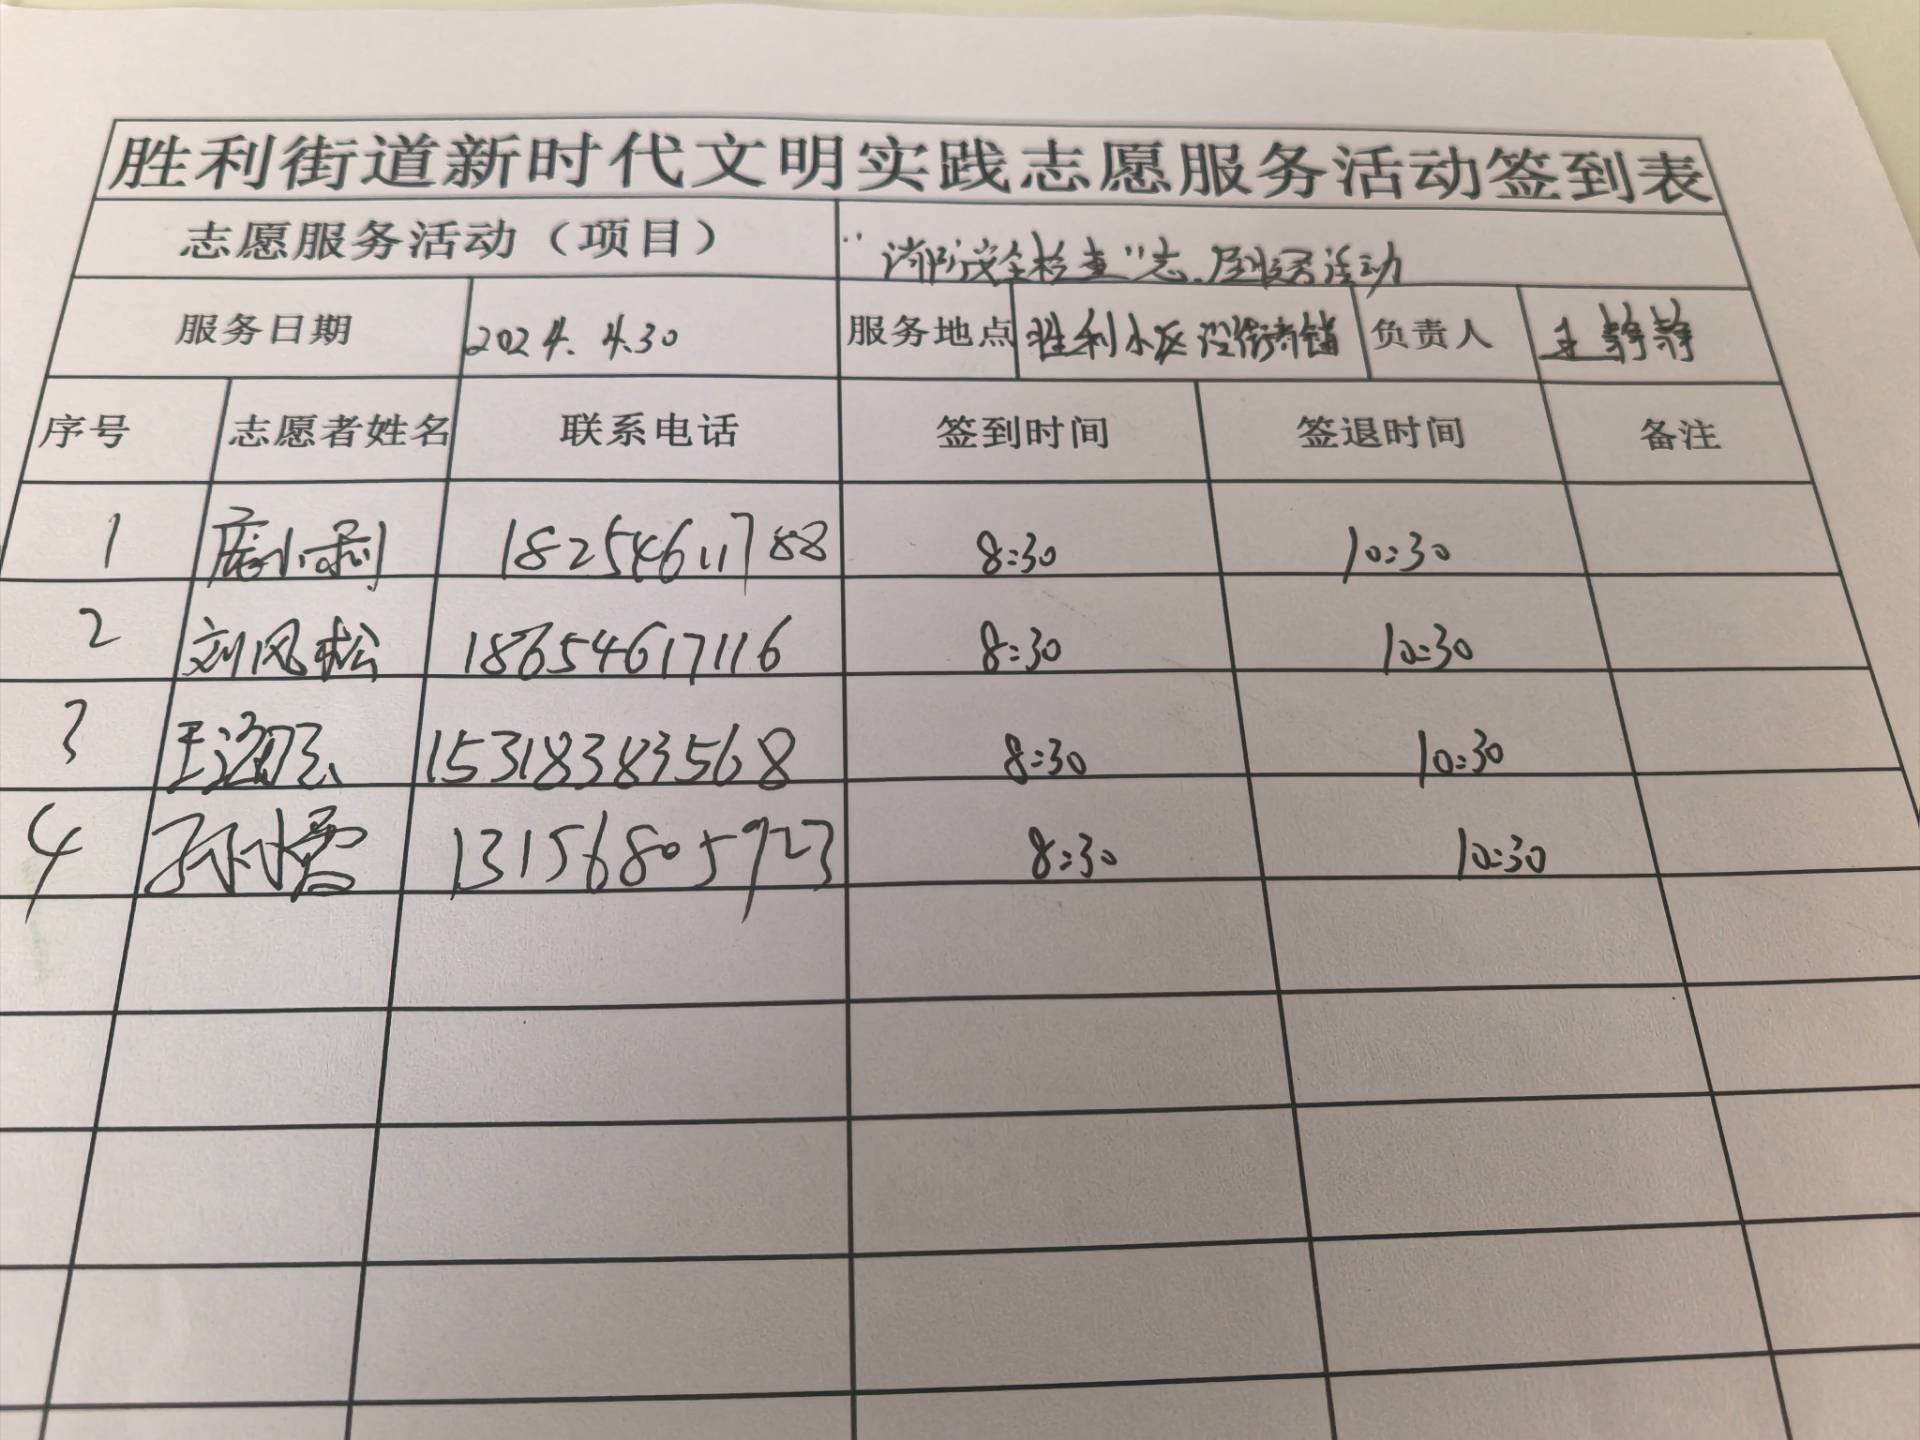 胜利街道新时代文明实践志愿服务活动签到表
志愿服务活动（项目） “消防安全检查”志愿服务活动
服务日期 2024.4.30 服务地点 胜利小区沿街商铺 负责人 王静静
序号 志愿者姓名 联系电话 签到时间 签退时间 备注
1 18254611788 8:30 10:30
2 刘风松 18654617116 8:30 10:30
3 15318383568 8:30 10:30
4 13156805923 8:30 10:30